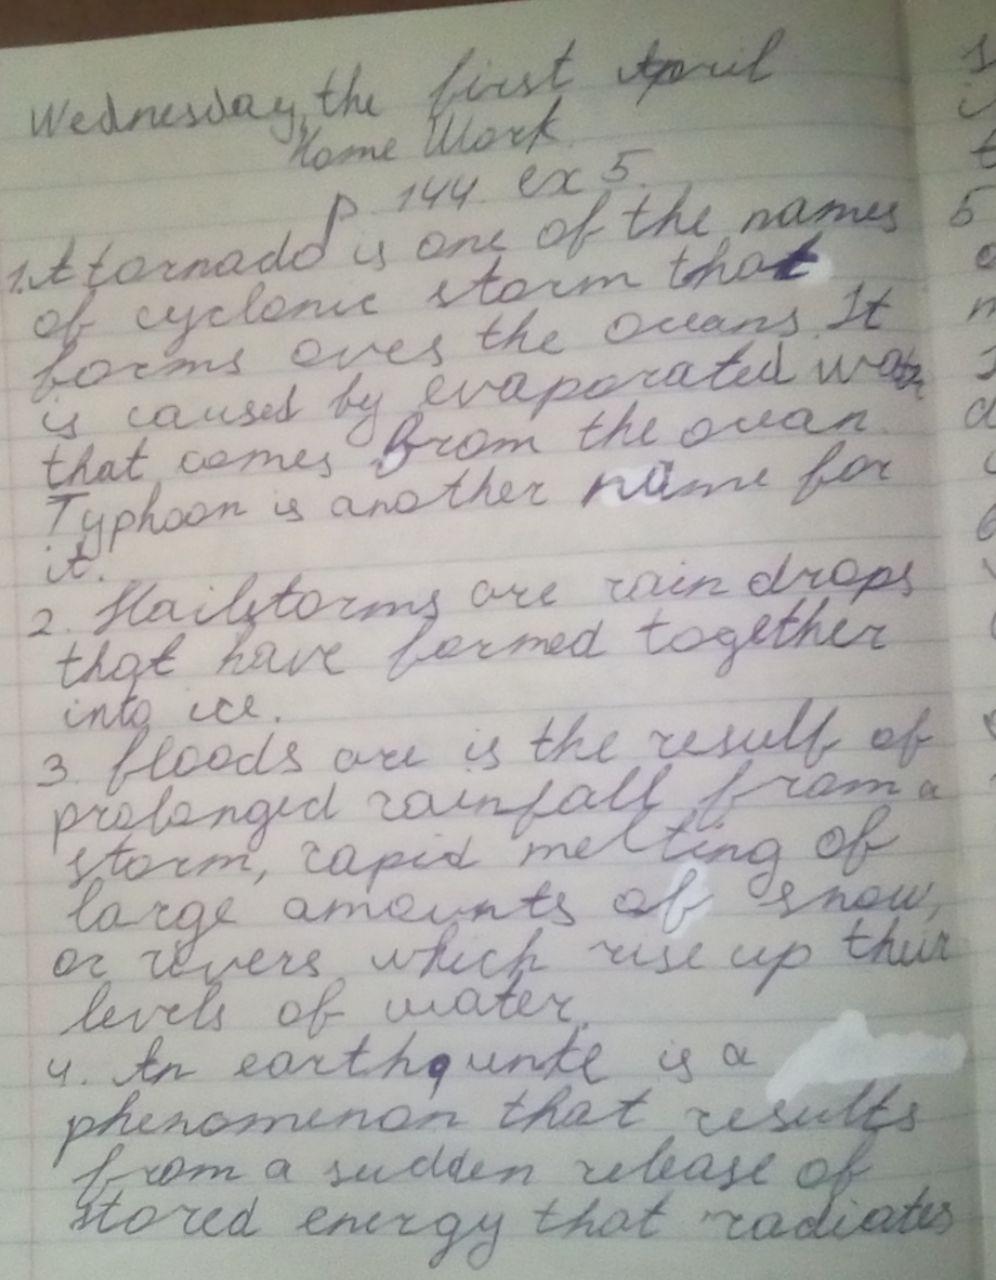 Wednesday, the first April
Home Work
p. 144. ex 5.
1. A tornado is one of the names
of cyclonic storm that
forms over the oceans. It
is caused by evaporated water
that comes from the ocean.
Typhoon is another name for
it.
2. Hailstorms are rain drops
that have formed together
into ice.
3. floods are is the result of
prolonged rainfall from a
storm, rapid melting of
large amounts of snow,
or rivers which rise up their
levels of water.
4. An earthqunke is a
phenomenon that results
from a sudden release of
stored energy that radiates